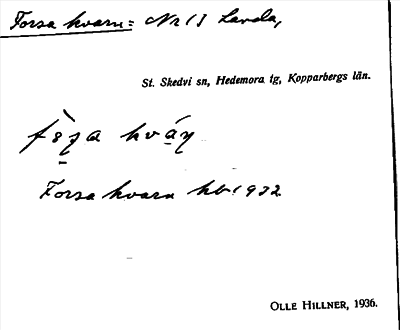 Forsa kvarn: Nr 13 Landa,
St. Skedvi sn, Hedemora tg, Kopparbergs län.
Forsa kvarn hb. 1932
OLLE HILLNER, 1936.